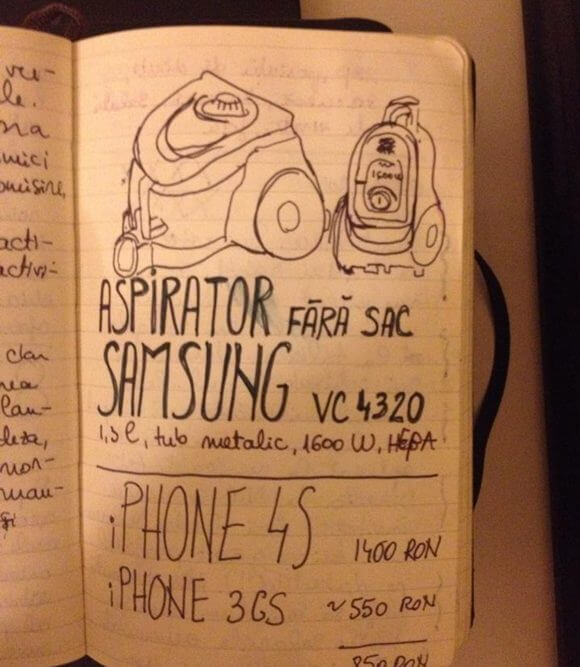 ver-
le.
mici
acti-
activi-
clar
rea
lan-
nor-
mau-
și
1500W
ASPIRATOR FĂRĂ SAC
SAMSUNG VC 4320
1,3 l, tub metalic, 1600 W, HEPA
iPHONE 4S 1400 RON
iPHONE 3GS ~ 550 RON
850 RON